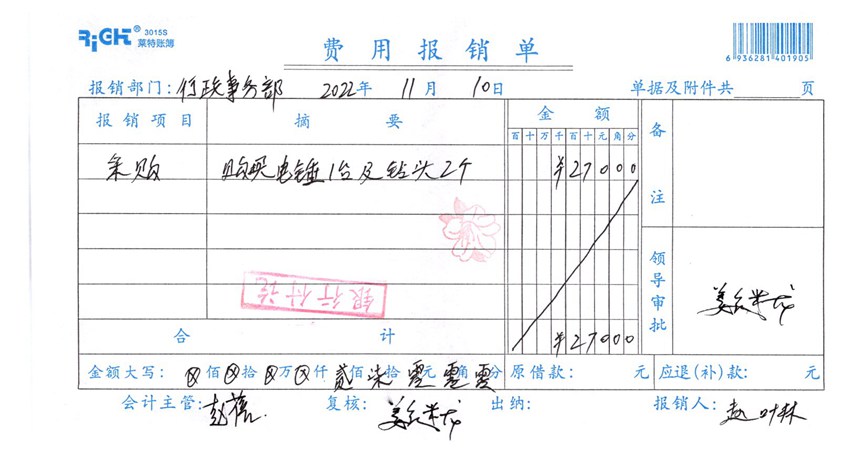 RiGHT® 3015S
莱特账簿
费用报销单
6 936281 401905
报销部门: 行政事务部 2022年 11月 10日 单据及附件共 页
报销项目 摘要 金额 备注
百 十 万 千 百 十 元 角 分
采购 购买电锤1台及钻头2个 ¥27000
银行付讫
领导审批
合计 ¥27000
金额大写: ⊗佰⊗拾⊗万⊗仟贰佰柒拾零元零角零分 原借款: 元 应退(补)款: 元
会计主管: 赵 复核: 出纳: 报销人: 赵叶林